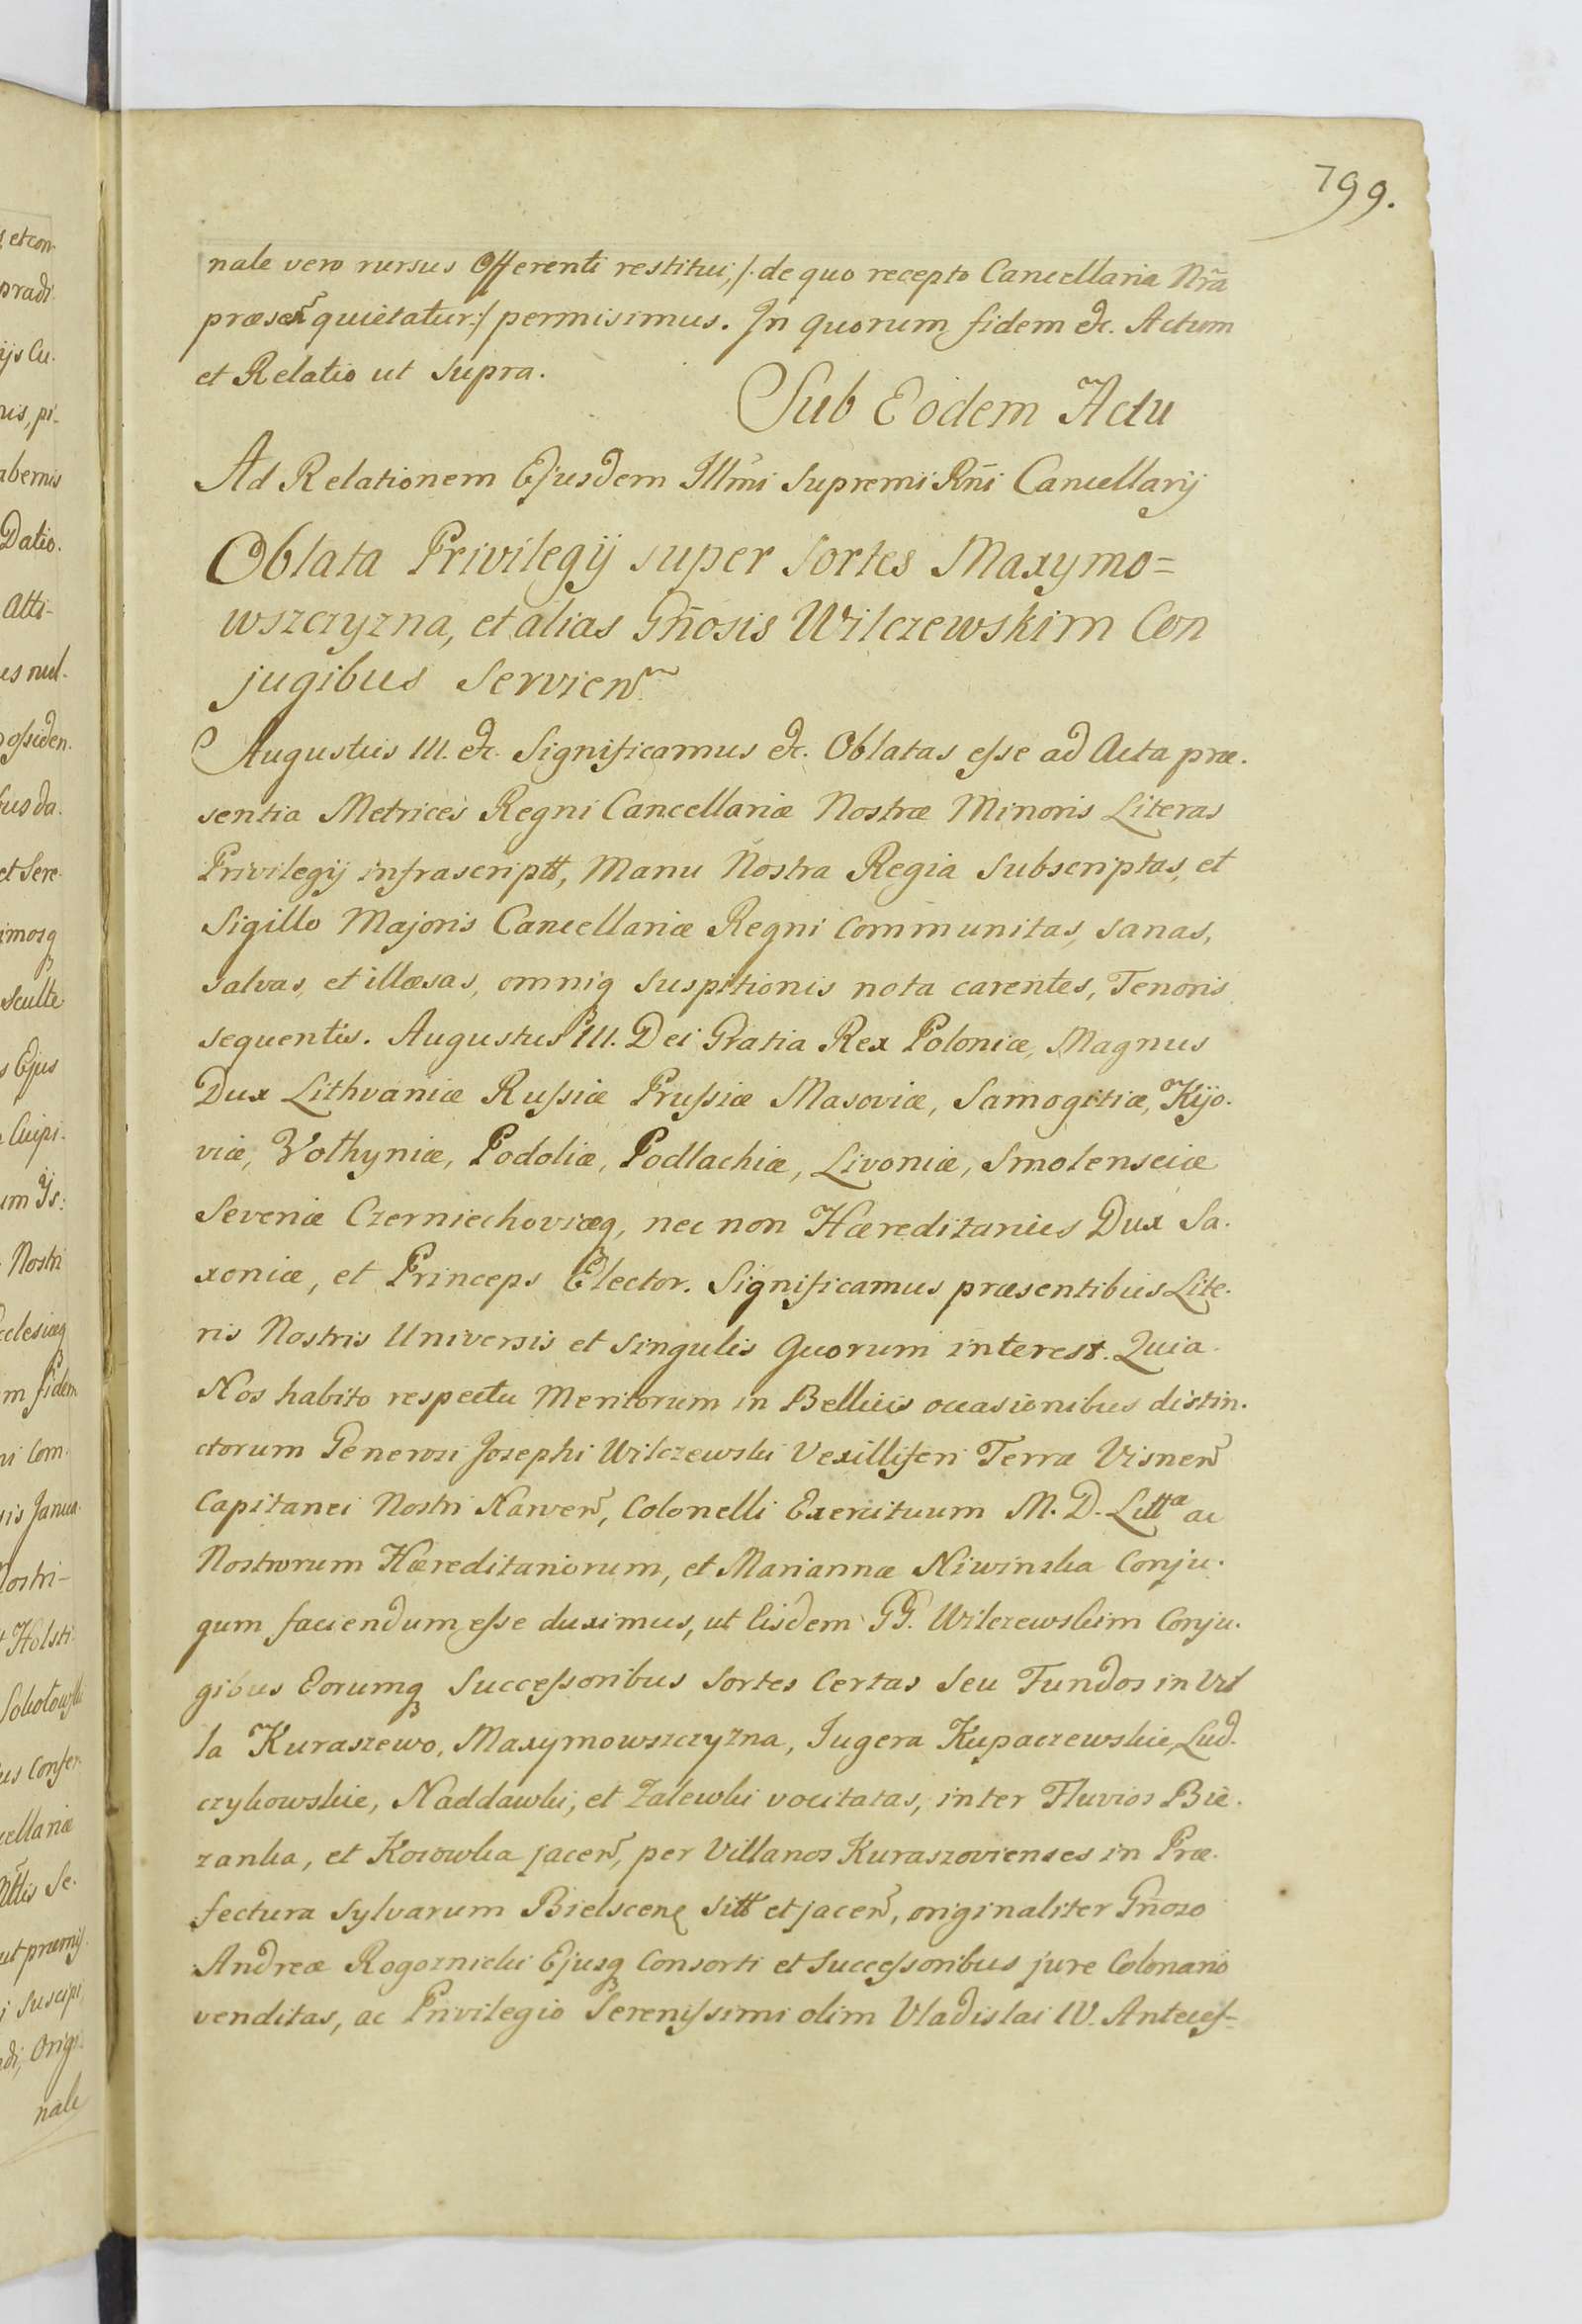 799.
nale vero rursus Offerenti restitui, /. de quo recepto Cancellaria Nr̃a
præsen̄ quietatur:/ permisimus. In quorum fidem &c. Actum
et Relatio ut supra.
Sub Eodem Actu
Ad Relationem Ejusdem Illm̄i Supremi Rn̄i Cancellarij
Oblata Privilegij super sortes Maxymo=
wszczyzna, et alias Gn̄osis Wilczewskim Con
jugibus servien̄
Augustus III. &c. Significamus &c. Oblatas esse ad Acta præ.
sentia Metrices Regni Cancellariæ Nostræ Minoris Literas
Privilegij infrascriptt, Manu Nostra Regia Subscriptas, et
Sigillo Majoris Cancellariæ Regni communitas, sanas,
salvas, et illæsas, omniq suspitionis nota carentes, Tenoris
sequentis. Augustus III. Dei Gratia Rex Poloniæ, Magnus
Dux Lithvaniæ Russiæ Prussiæ Masoviæ, Samogitiæ, Kijo.
viæ, Volhyniæ, Podoliæ, Podlachiæ, Livoniæ, Smolensciæ
Severiæ Czerniechoviæq, nec non Hæreditarius Dux Sa.
xoniæ, et Princeps Elector. Significamus præsentibus Lite.
ris Nostris Universis et singulis quorum interest. Quia
Nos habito respectu Meritorum in Bellicis occasionibus distin.
ctorum Generosi Josephi Wilczewski Vexilliferi Terræ Visnen̄
Capitanei Nostri Narven̄, Colonelli Exercituum M. D. Littæ ac
Nostrorum Hæreditariorum, et Mariannæ Niwinska Conju.
gum faciendum esse duximus, ut Eisdem GG. Wilczewskim Conju.
gibus Eorumq Successoribus sortes certas seu Fundos in Vil
la Kuraszewo, Maxymowszczyzna, Jugera Kupaczewskie, Lud.
czykowskie, Naddawki, et Zalewki vocitatas, inter Fluvios Bie.
zanka, et Kozowka jacen̄, per Villanos Kuraszovienses in Præ.
fectura Sylvarum Bielscen sitt et jacen̄, originaliter Gn̄oso
Andreæ Rogoznicki Ejusq Consorti et Successoribus jure Colonario
venditas, ac Privilegio Serenissimi olim Vladislai IV. Anteces=